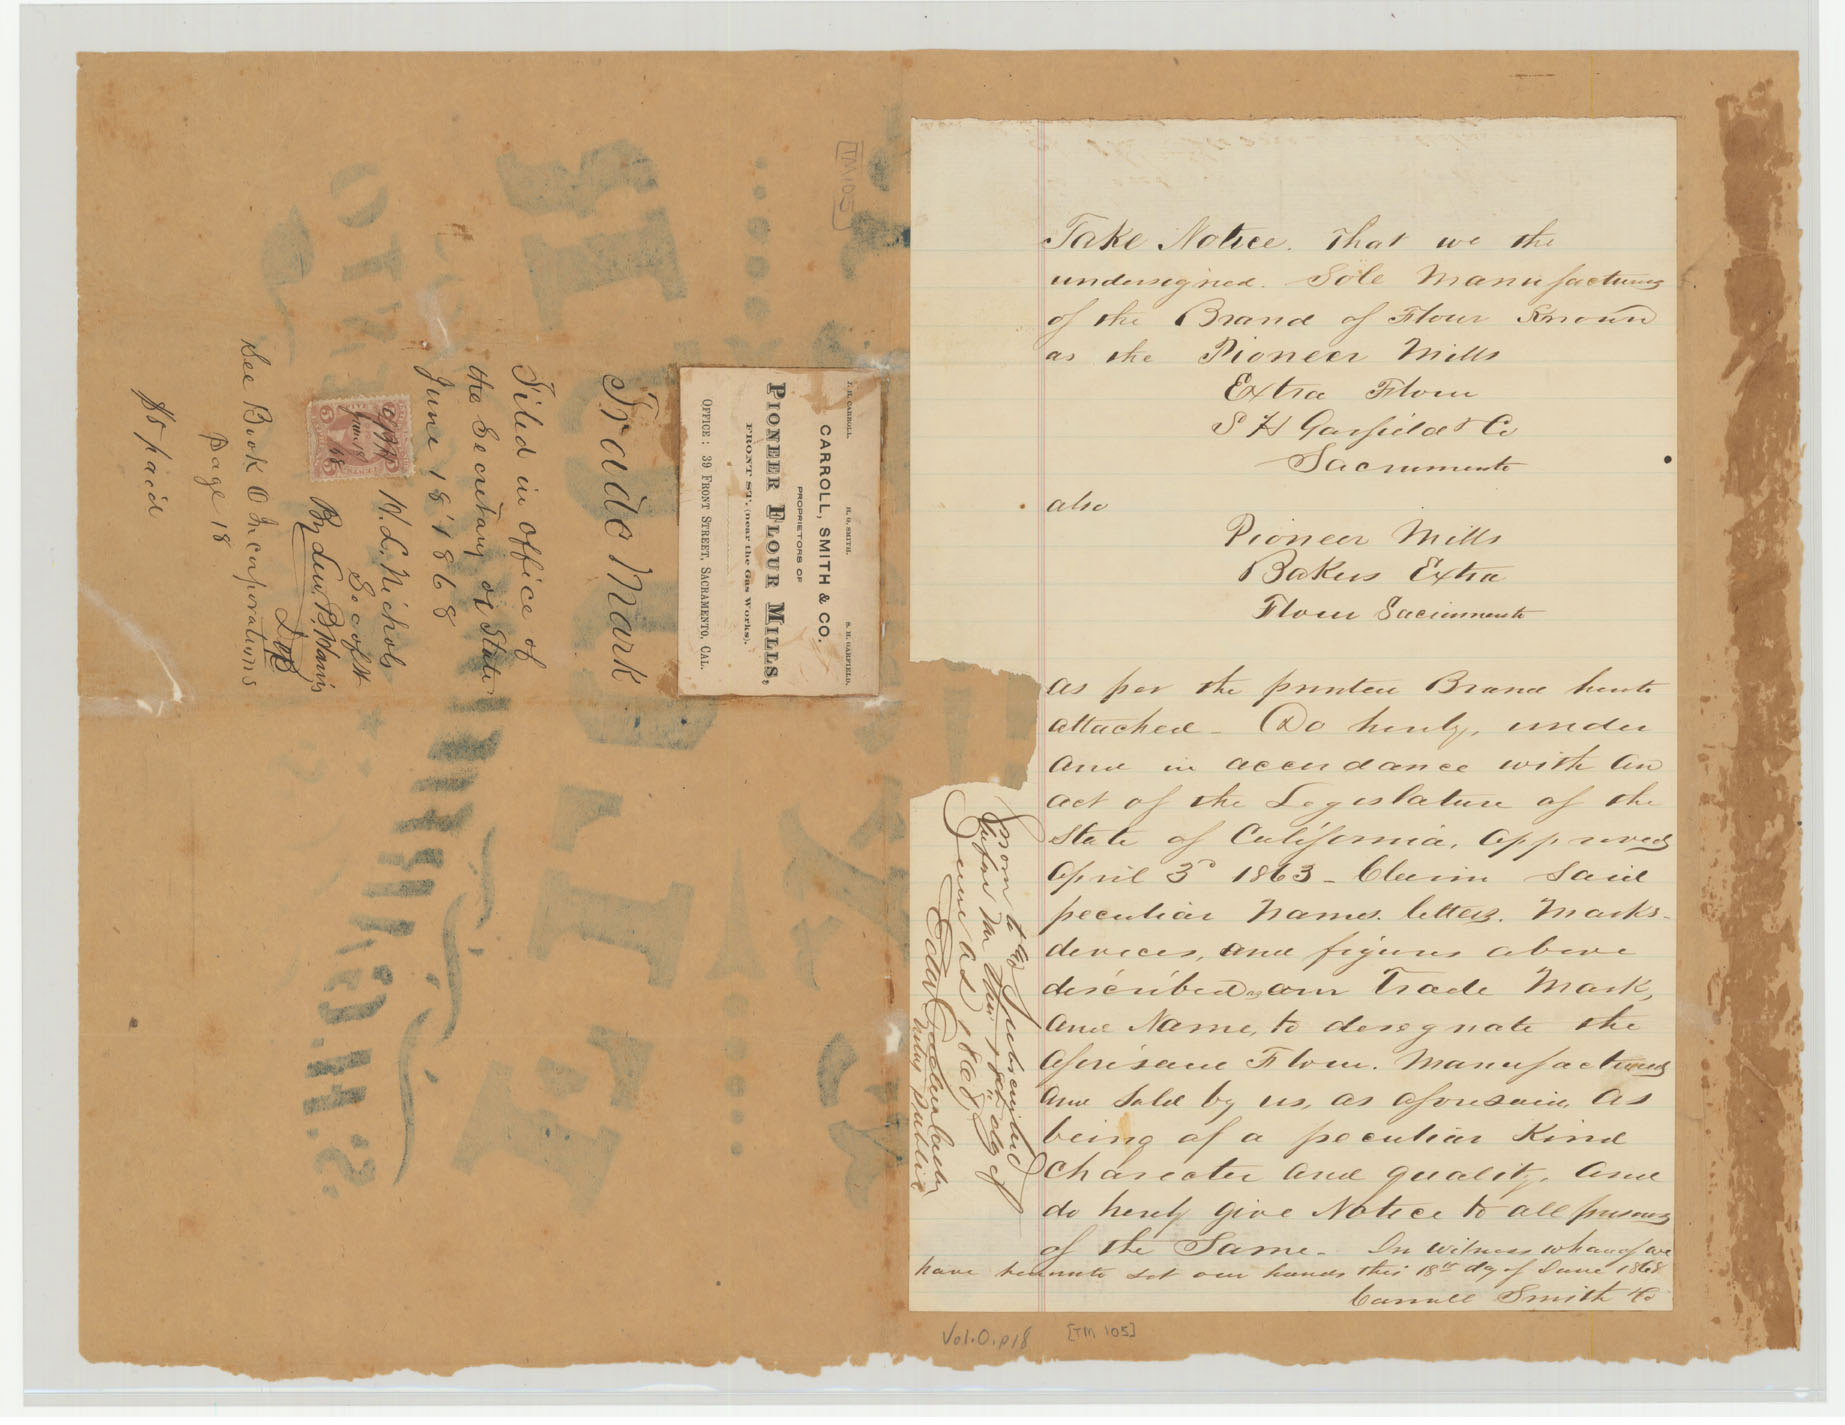 Take Notice. That we the
undersigned. Sole Manufacturers
of the Brand of Flour Known
as the Pioneer Mills
Extra Flour
S H Garfield & Co
Sacramento
also
Pioneer Mills
Bakers Extra
Flour Sacramento
as per the printed Brand hereto
attached - Do hereby, under
and in accordance with an
act of the Legislature of the
State of California, approved
April 3d 1863 - Claim said
peculiar names. letters. Marks.
devices, and figures above
described as our Trade Mark,
and Name, to designate the
aforesaid Flour. Manufactured
and sold by us, as aforesaid, as
being of a peculiar Kind
Character and quality, and
do hereby give Notice to all persons
of the Same. In witness whereof we
have hereunto set our hands this 18th day of June 1868
Carroll Smith & Co
Sworn to & Subscribed
before me this 18th day of
June A.D. 1868
Edw
Notary Public
Vol. O. p18
[TM 105]
TM105
J. H. CARROLL. H. G. SMITH. S. H. GARFIELD.
CARROLL, SMITH & CO.
PROPRIETORS OF
PIONEER FLOUR MILLS,
FRONT ST. (near the Gas Works).
OFFICE: 39 FRONT STREET, SACRAMENTO, CAL.
Trade Mark
Filed in office of
the Secretary of State
June 18' 1868
H. L. Nichols
Sec of St
By Lew. B. Harris
Dep
See Book O Incorporations
page 18
$5 paid